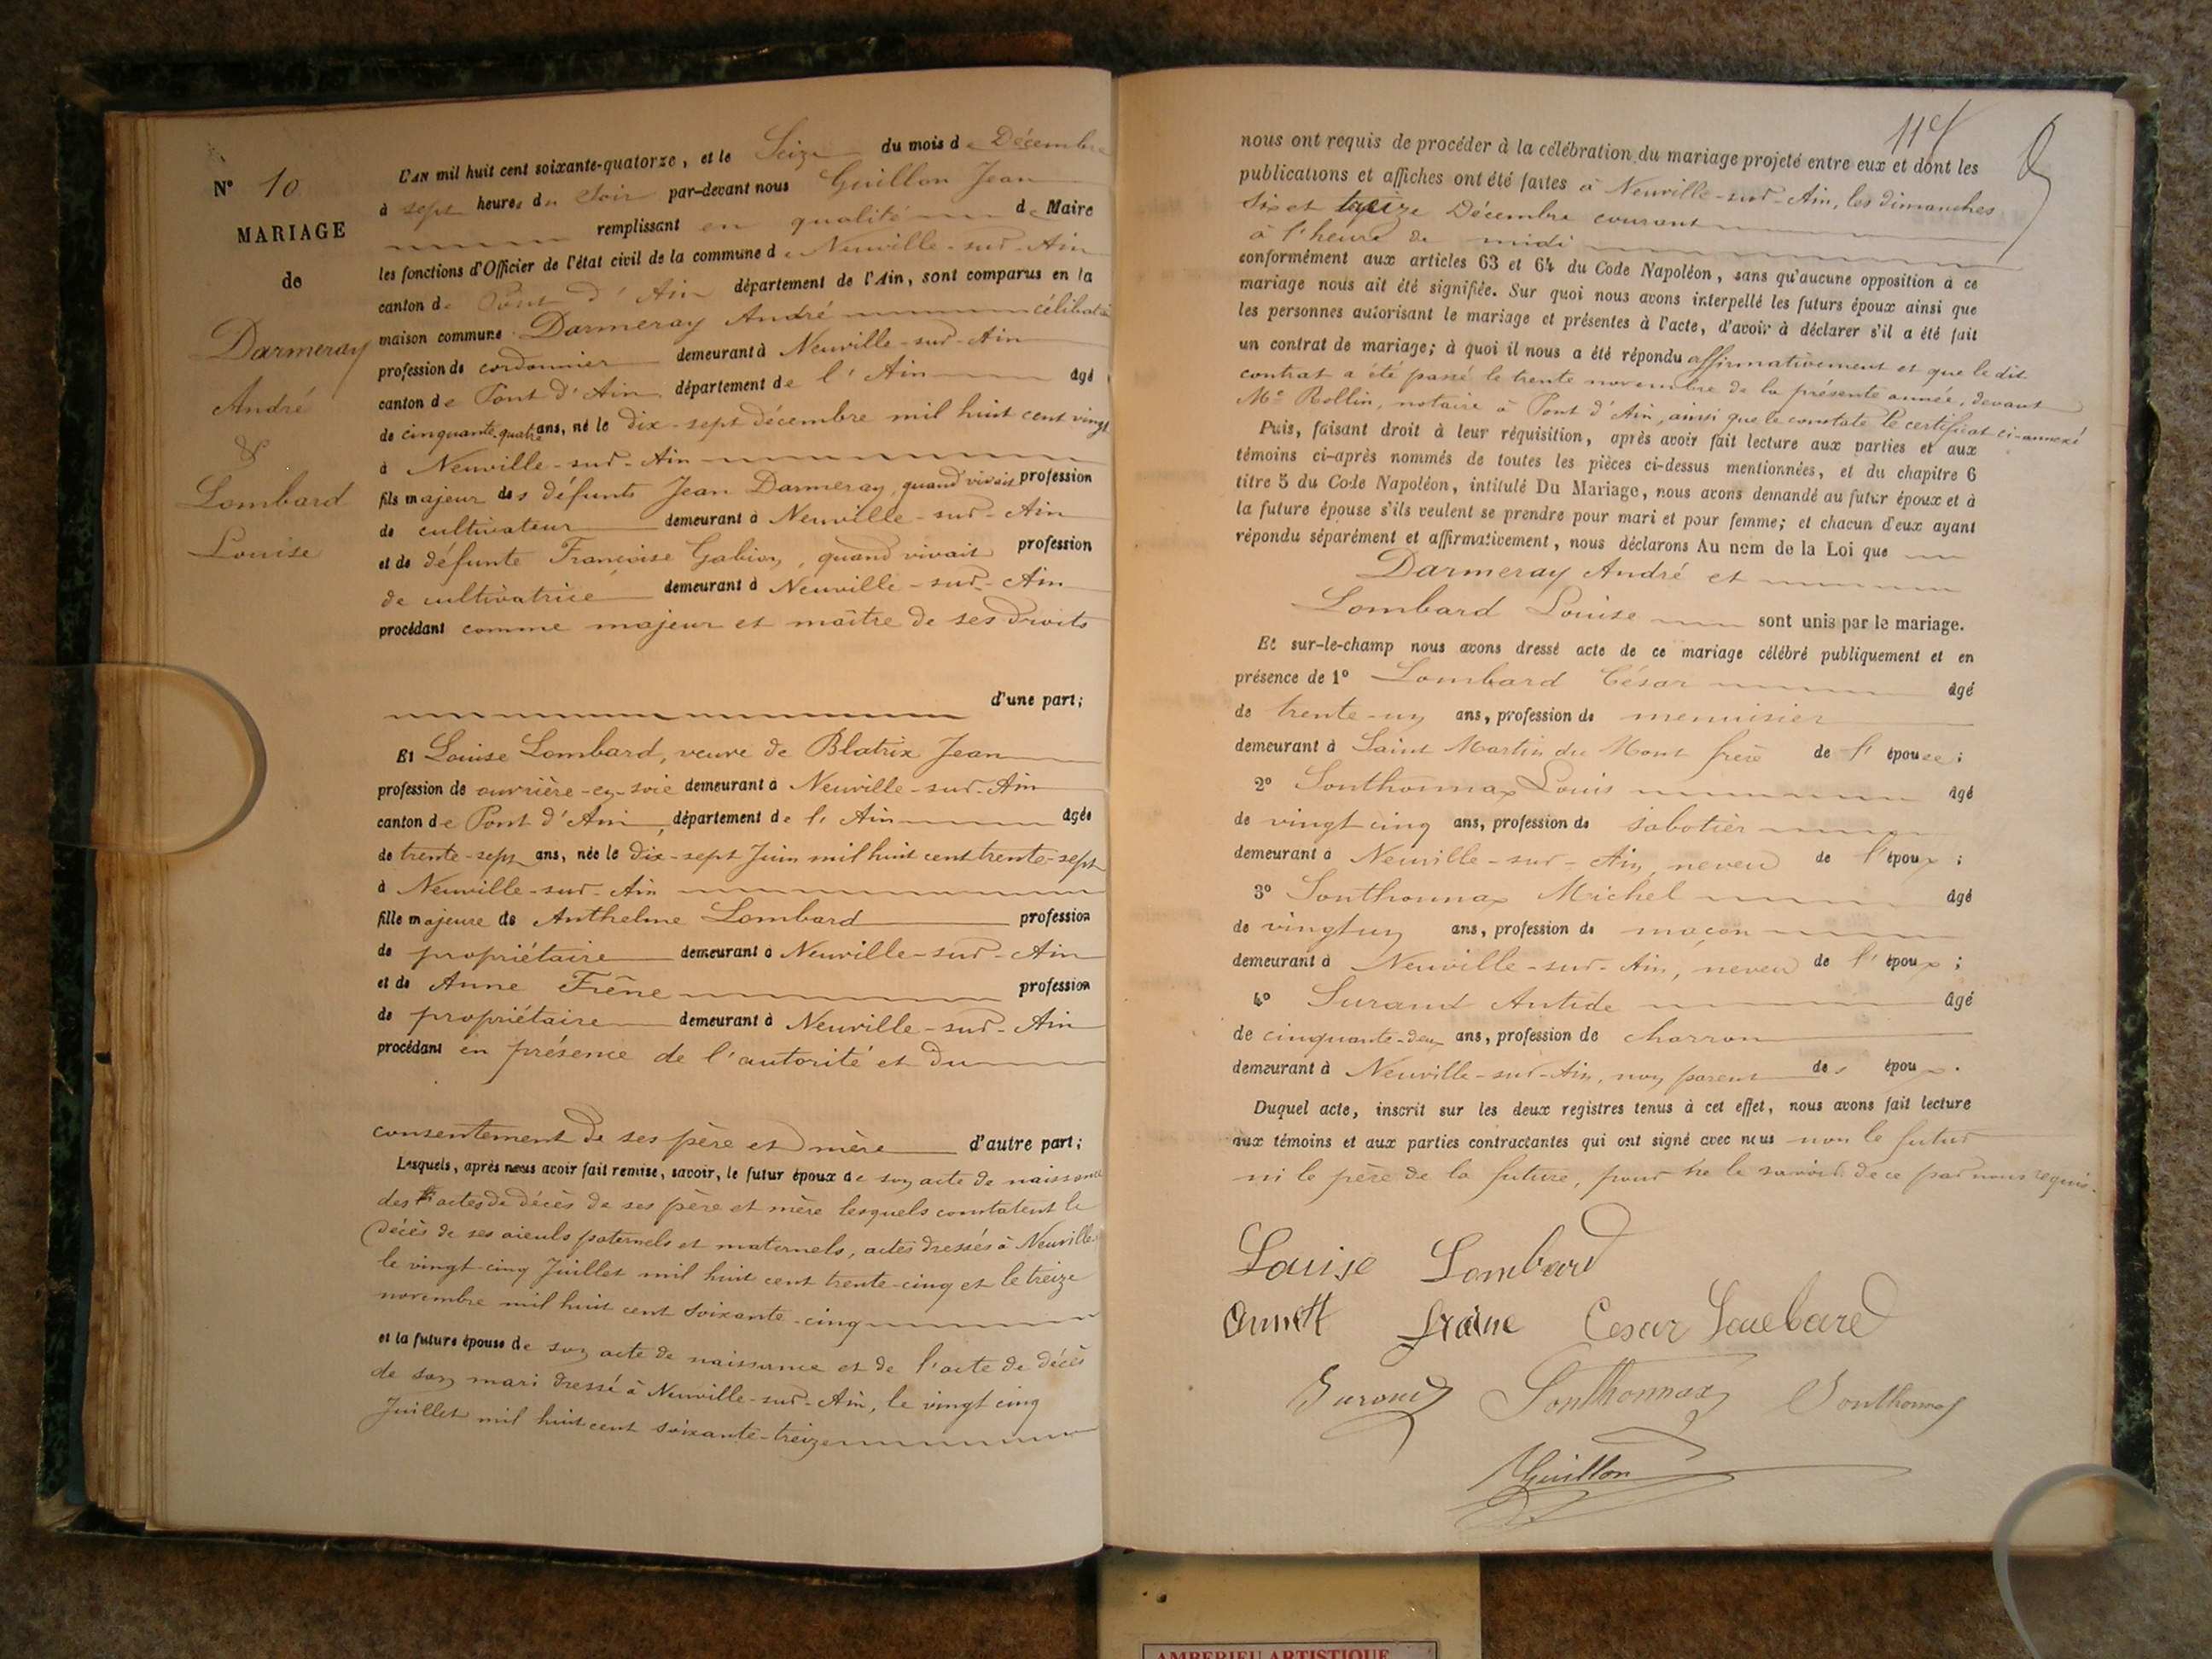 N° 10
MARIAGE
de
Darmeray
André
&
Lombard
Louise
L'AN mil huit cent soixante-quatorze, et le Seize du mois de Décembre
à sept heures du Soir par-devant nous Guillon Jean
remplissant en qualité de Maire
les fonctions d'Officier de l'état civil de la commune de Neuville-sur-Ain
canton de Pont d'Ain département de l'Ain, sont comparus en la
maison commune Darmeray André célibataire
profession de cordonnier demeurant à Neuville-sur-Ain
canton de Pont d'Ain département de l'Ain âgé
de cinquante-quatre ans, né le dix-sept décembre mil huit cent vingt
à Neuville-sur-Ain
fils majeur des défunts Jean Darmeray, quand vivait profession
de cultivateur demeurant à Neuville-sur-Ain
et de défunte Françoise Gabion, quand vivait profession
de cultivatrice demeurant à Neuville-sur-Ain
procédant comme majeur et maître de ses droits
d'une part;
Et Louise Lombard, veuve de Blatrix Jean
profession de ouvrière-en-soie demeurant à Neuville-sur-Ain
canton de Pont d'Ain, département de l'Ain âgée
de trente-sept ans, née le dix-sept Juin mil huit cent trente-sept
à Neuville-sur-Ain
fille majeure de Anthelme Lombard profession
de propriétaire demeurant à Neuville-sur-Ain
et de Anne Frêne profession
de propriétaire demeurant à Neuville-sur-Ain
procédant en présence de l'autorité et du
consentement de ses père et mère d'autre part;
Lesquels, après nous avoir fait remise, savoir, le futur époux de son acte de naissance
des actes de décès de ses père et mère lesquels constatent le
décès de ses aïeuls paternels et maternels, actes dressés à Neuville
le vingt-cinq Juillet mil huit cent trente-cinq et le treize
novembre mil huit cent soixante-cinq
et la future épouse de son acte de naissance et de l'acte de décès
de son mari dressé à Neuville-sur-Ain, le vingt cinq
Juillet mil huit cent soixante-treize
nous ont requis de procéder à la célébration du mariage projeté entre eux et dont les
publications et affiches ont été faites à Neuville-sur-Ain, les dimanches
six et treize Décembre courant
à l'heure de midi
conformément aux articles 63 et 64 du Code Napoléon, sans qu'aucune opposition à ce
mariage nous ait été signifiée. Sur quoi nous avons interpellé les futurs époux ainsi que
les personnes autorisant le mariage et présentes à l'acte, d'avoir à déclarer s'il a été fait
un contrat de mariage; à quoi il nous a été répondu affirmativement et que le dit
contrat a été passé le trente novembre de la présente année, devant
Me Rollin, notaire à Pont d'Ain, ainsi que le constate le certificat ci-annexé
Puis, faisant droit à leur réquisition, après avoir fait lecture aux parties et aux
témoins ci-après nommés de toutes les pièces ci-dessus mentionnées, et du chapitre 6
titre 5 du Code Napoléon, intitulé Du Mariage, nous avons demandé au futur époux et à
la future épouse s'ils veulent se prendre pour mari et pour femme; et chacun d'eux ayant
répondu séparément et affirmativement, nous déclarons Au nom de la Loi que
Darmeray André et
Lombard Louise sont unis par le mariage.
Et sur-le-champ nous avons dressé acte de ce mariage célébré publiquement et en
présence de 1° Lombard César âgé
de trente-un ans, profession de menuisier
demeurant à Saint Martin du Mont frère de l'épouse;
2° Sonthonnax Louis âgé
de vingt cinq ans, profession de sabotier
demeurant à Neuville-sur-Ain, neveu de l'époux;
3° Sonthonnax Michel âgé
de vingt un ans, profession de maçon
demeurant à Neuville-sur-Ain, neveu de l'époux;
4° Surand Antide âgé
de cinquante-deux ans, profession de charron
demeurant à Neuville-sur-Ain, non parent des époux.
Duquel acte, inscrit sur les deux registres tenus à cet effet, nous avons fait lecture
aux témoins et aux parties contractantes qui ont signé avec nous non le futur
ni le père de la future, pour ne le savoir de ce par nous requis.
Louise Lombard
Annett fraine Cesar Lombard
Surand Sonthonnax Sonthonnax
Guillon
AMBERIEU ARTISTIQUE